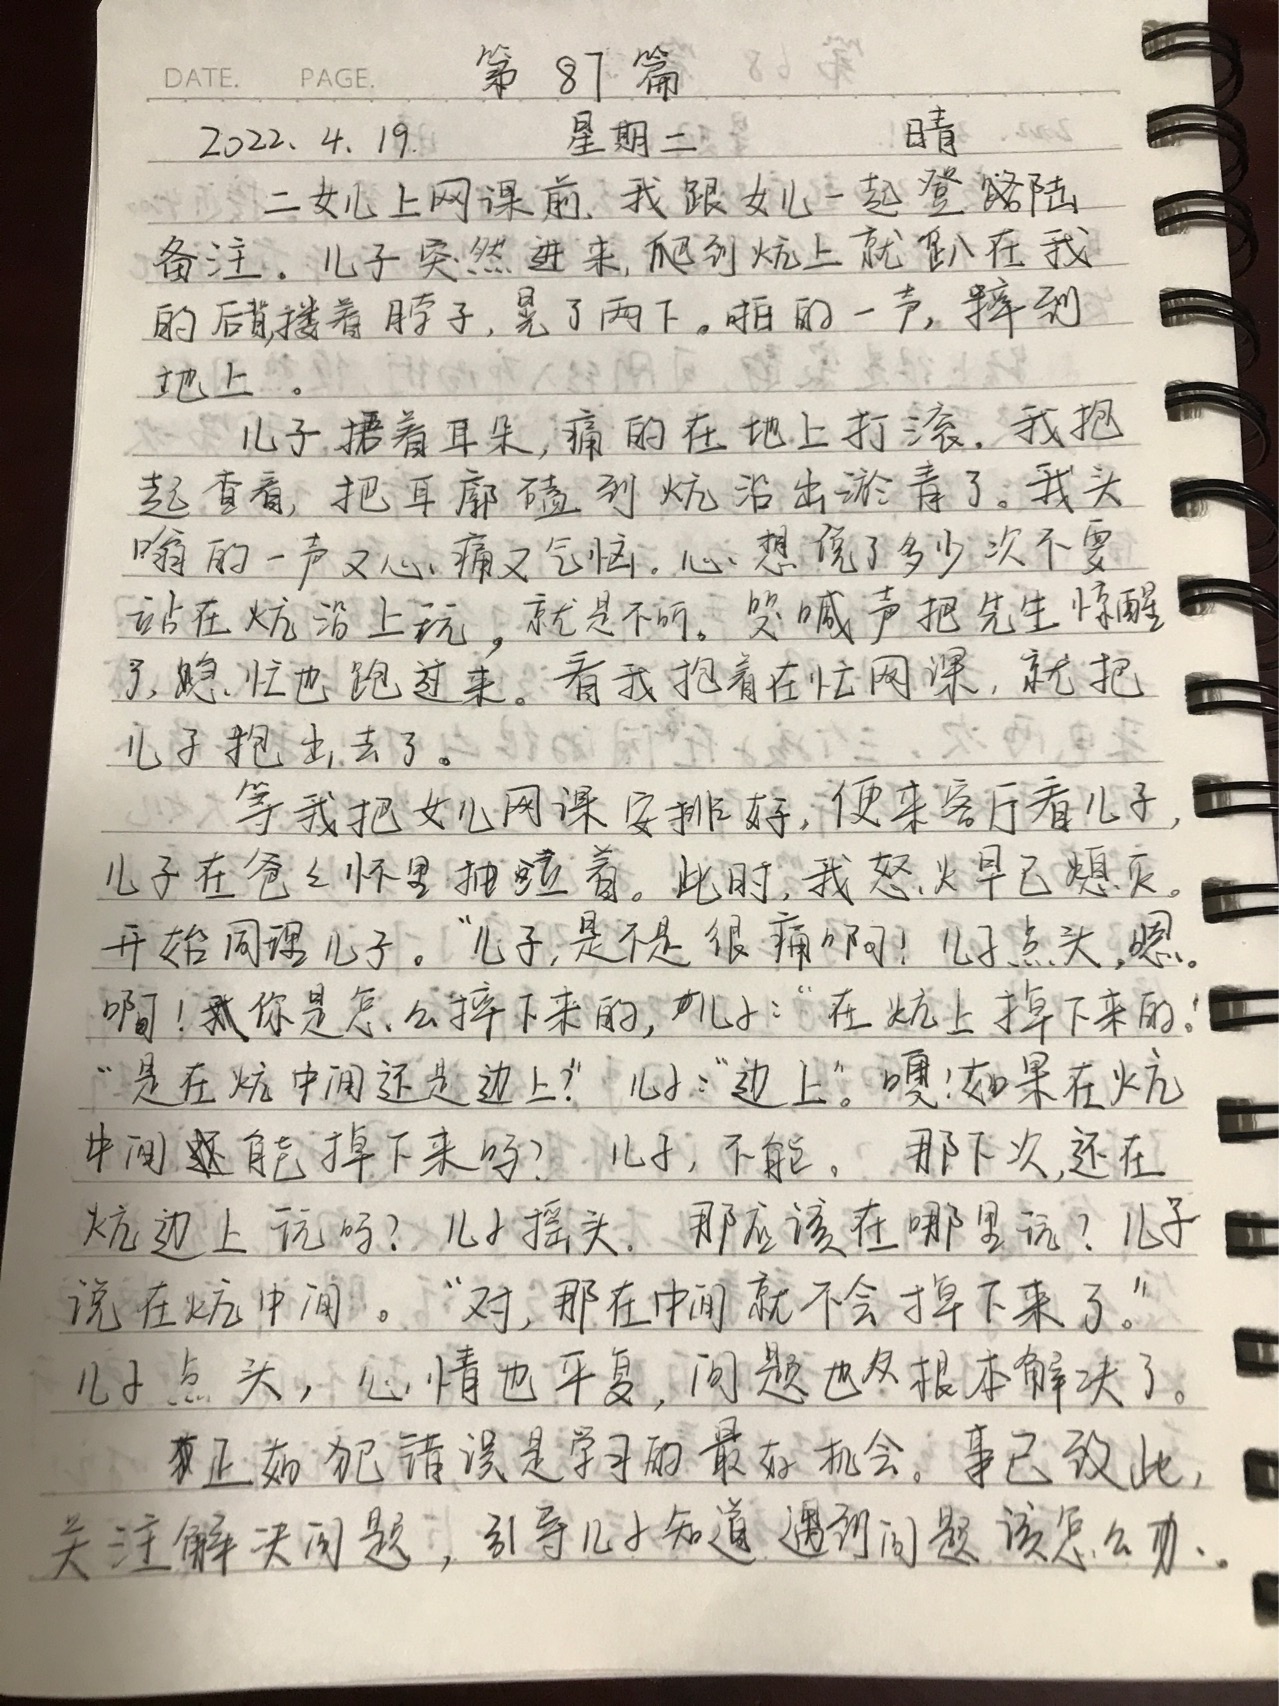 DATE. PAGE. 第 87 篇
2022.4.19. 星期二 晴
二女儿上网课前、我跟女儿一起登陆
备注。儿子突然进来,爬到炕上就趴在我
的后背,搂着脖子,晃了两下。啪的一声,摔到
地上。
儿子捂着耳朵,痛的在地上打滚。我抱
起查看,把耳廓磕到炕沿出淤青了。我头
嗡的一声又心痛又气恼。心想说了多少次不要
站在炕沿上玩,就是不听。哭喊声把先生惊醒
了,急忙也跑过来。看我抱着在忙网课,就把
儿子抱出去了。
等我把女儿网课安排好,便来客厅看儿子,
儿子在爸々怀里抽泣着。此时,我怒火早已熄灭。
开始同理儿子。“儿子,是不是很痛啊!儿子点头,嗯。
啊!你是怎么摔下来的,儿子:“在炕上掉下来的!
“是在炕中间还是边上?”儿子:“边上”。噢!如果在炕
中间还能掉下来吗?儿子,不能。那下次,还在
炕边上玩吗?儿子摇头.那应该在哪里玩?儿子
说在炕中间。“对,那在中间就不会掉下来了。”
儿子点头,心情也平复,问题也根本解决了。
正如犯错误是学习的最好机会。事已致此,
关注解决问题,引导儿子知道遇到问题该怎么办。